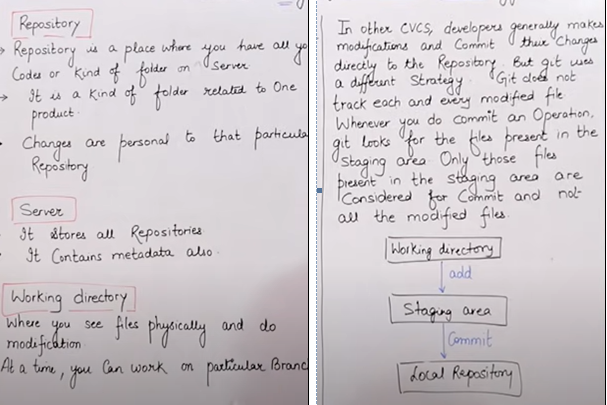 Repository
Repository is a place where you have all yo
Codes or kind of folder on Server
It is a kind of folder related to One
product.
Changes are personal to that particula
Repository
Server
It Stores all Repositories
It Contains metadata also.
Working directory
Where you see files physically and do
modification
At a time, you Can work on particular Branc
In other CVCS, developers generally makes
modifications and Commit their Changes
directly to the Repository. But git uses
a different Strategy. Git does not
track each and every modified file.
Whenever you do commit an Operation,
git looks for the files present in the
Staging area. Only those files
present in the Staging area are
Considered for Commit and not
all the modified files.
Working directory
add
Staging area
Commit
Local Repository